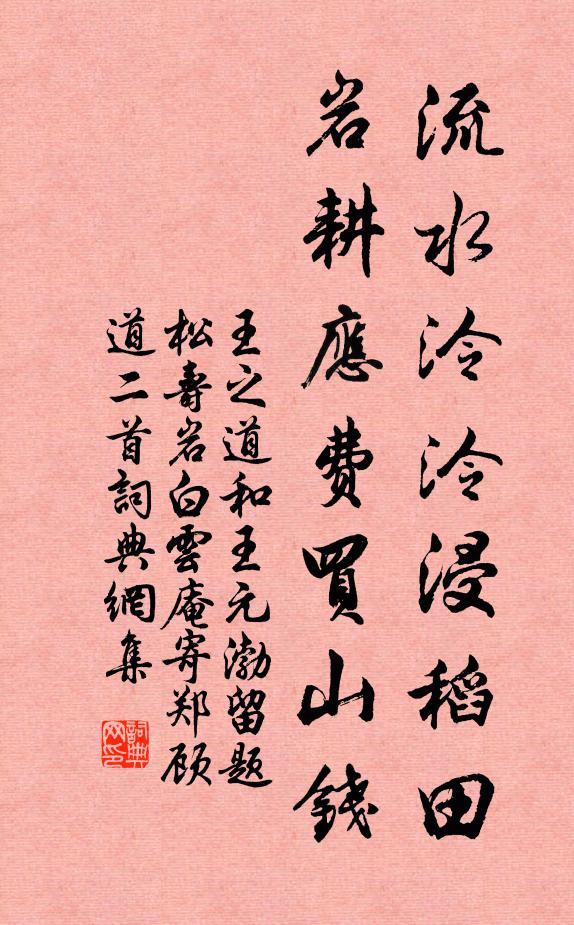 流水泠泠浸稻田
岩耕應费買山錢
王之道和王元渤留題
松壽岩白雲庵寄郑顾
道二首詞典網集
詞典网印